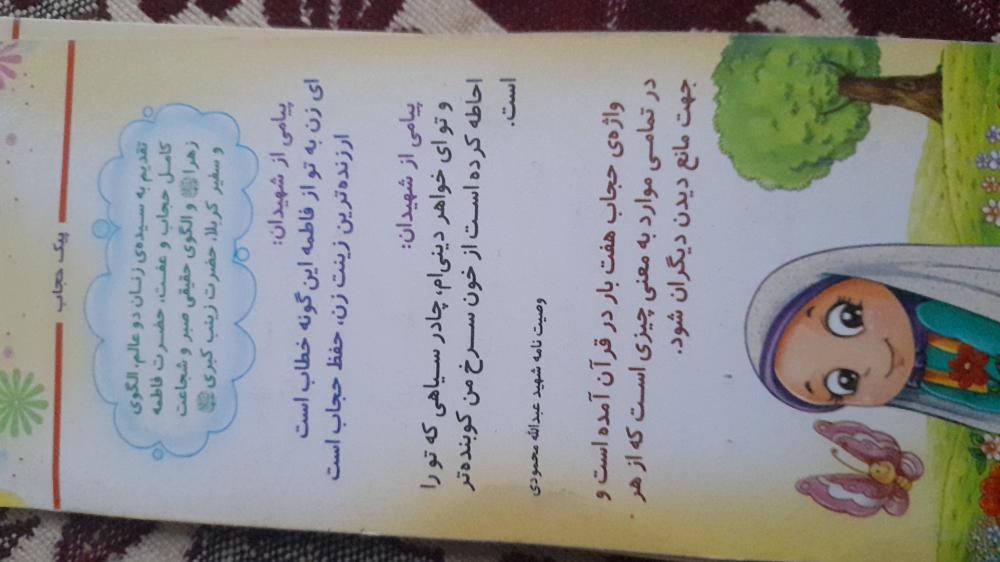 پیک حجاب
تقدیم به سیده‌ی زنان دو عالم، الگوی
کامل حجاب و عفت، حضرت فاطمه
زهرا و الگوی حقیقی صبر و شجاعت
و سفیر کربلا، حضرت زینب کبری
پیامی از شهیدان:
ای زن به تو از فاطمه این گونه خطاب است
ارزنده‌ترین زینت زن، حفظ حجاب است
پیامی از شهیدان:
و تو ای خواهر دینی‌ام، چادر سیاهی که تو را
احاطه کرده است از خون سرخ من کوبنده‌تر
است.
وصیت نامه شهید عبدالله محمودی
واژه‌ی حجاب هفت بار در قرآن آمده است و
در تمامی موارد به معنی چیزی است که از هر
جهت مانع دیدن دیگران شود.